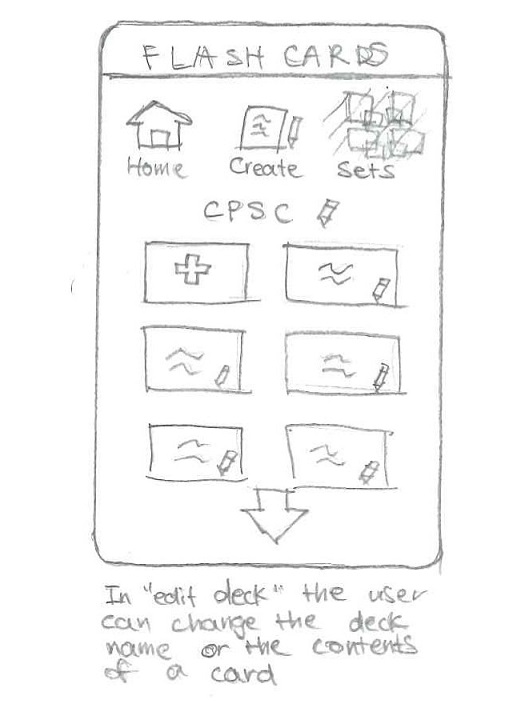 FLASH CARDS
Home Create Sets
CPSC
In "edit deck" the user
can change the deck
name or the contents
of a card